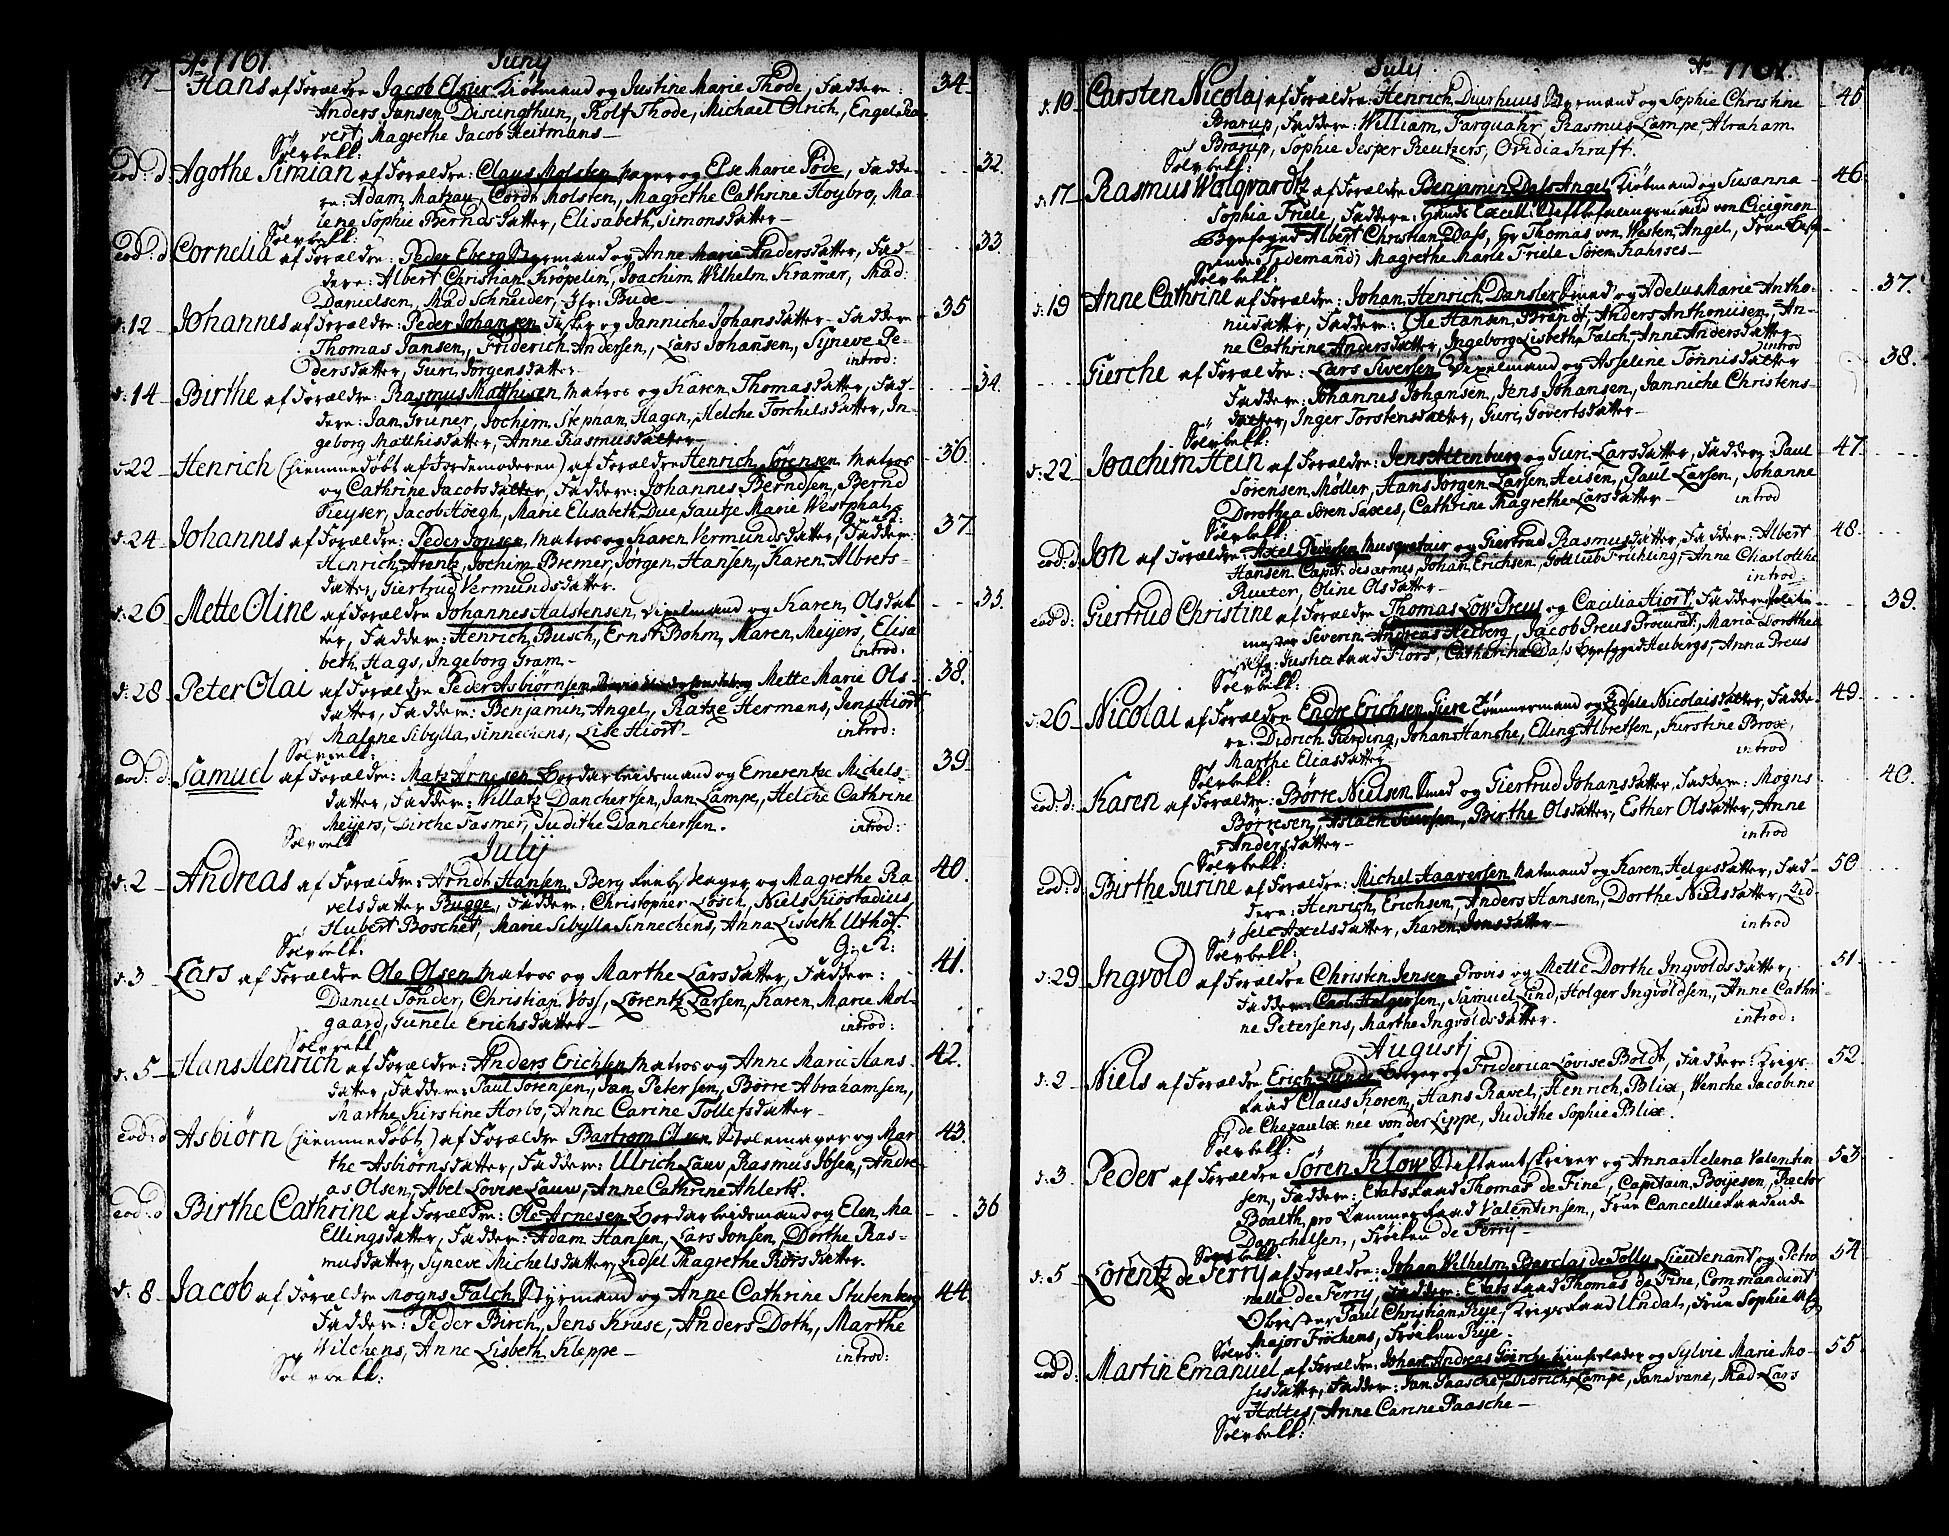 Ao 1761. Junij
7 Hans af Forældre Jacob Kiøbmand og Justine Marie Thode, Faddere: 34
Anders Jansen, Rolf Thode, Michael Olrich, Engel
vert, Magrethe Jacob Reitmans
Sølvbell:
eod: d Agothe Simian af Forældre: Claus Molsten og Else Marie Fode, Fadde- 32.
re: Adam Matzau, Cordt Molsten, Magrethe Cathrine Hoybro, Ma-
lene Sophie Berndsdatter, Elisabeth Simonsdatter
Sølvbell:
eod: d Cornelia af Forældre: Peder Eberg Styrmand og Anne Marie Andersdatter, Fad- 33.
dere: Albert Christian Kröpelin, Joachim Wilhelm Kramer, Mad:
Danielsen, Mad Schneider, Jfr: Bude
d: 12 Johannes af Forældre: Peder Johansen Fisker og Janniche Johansdatter Faddere 35
Thomas Jansen, Friderich Andersen, Lars Johansen, Syneve Pe-
dersdatter, Guri Jørgensdatter introd:
d: 14 Birthe af Forældre: Rasmus Mathisen Matros og Karen Thomasdatter, Fad- 34.
dere: Jan Gruner, Jochim Stephan Hagen, Helche Torchilsdatter, In-
geborg Matthisdatter, Anne Rasmusdatter
d: 22 Henrich (hiemmedøbt af Jordemoderen) af Forældre Henrich Sörensen Matros 36.
og Cathrine Jacobsdatter, Faddere: Johannes Berndsen, Bernd
Feyser, Jacob Höegh, Marie Elisabeth Due, Gautje Marie Westphal
d: 24 Johannes af Forældre: Peder Jonsen Matros og Karen Vermundsdatter, Faddere: 37
Henrich Arentz, Jochim Bremer, Jørgen Hansen, Karen Albrets-
datter, Giertrud Vermundsdatter.
d: 26 Mette Oline af Forældre Johannes Halstensen, og Karen Olsdat 35.
ter, Faddere: Henrich Busch, Ernst Bohm, Maren Meijers, Elisa
beth Hags, Ingeborg Gram. introd:
d: 28 Peter Olai af Forældre Peder Asbiørnsen Mette Marie Ols- 38.
datter, Faddere: Benjamin Angel, Ratze Hermans, Jens Hiort
Malene Sibylla Sinnechens, Lise Hiort introd:
Sølvbell:
eod: d: Samuel af Forældre: Matz Arnesen Bordarbeidsmand og Emerentze Michels- 39
datter, Faddere: Willatz Danchertsen, Jan Lampe, Helche Cathrine
Meijers, Dirche Fasmer, Judithe Danchertsen. introd:
Sølvbell
Julij
d: 2 Andreas af Forældre: Arndt Hansen Berg og Magrethe Pa 40.
velsdatter Bugge, Faddere: Christopher Losch, Niels Kiøstadius,
Hubert Boschet, Marie Sibylla Sinnechens, Anna Lisbeth Uthof.
Sølvbell:
d: 3 Lars af Forældre Ole Olsen Matros og Marthe Larsdatter, Faddere: 41.
Daniel Tønder, Christian Vos, Lorentz Larsen, Karen Marie Mol-
gaard, Gunele Erichsdatter introd:
Sølvbell
d: 5 Hans Henrich af Forældre: Anders Erichsen Matros og Anne Marie Hans- 42.
datter, Faddere: Paul Sørensen, Jan Petersen, Børre Abrahamsen,
Marthe Kirstine Horbo, Anne Carine Tollefsdatter
eod: d Asbiørn (hiemmedøbt) af Forældre Bastrom Olsen Stolemager og Mar 43.
the Asbiørnsdatter, Faddere: Ulrich Lauw, Rasmus Ibsen, Andre-
as Olsen, Abel Lovise Lauw, Anne Cathrine Ahlertz.
eod: d Birthe Cathrine af Forældre: Ole Arnesen Bordarbeidsmand og Elen Ma 36
Ellingsdatter, Faddere: Adam Hansen, Lars Jonsen, Dorthe Ras-
musdatter, Syneve Michelsdatter, Zidsel Magrethe Roersdatter.
d: 8 Jacob af Forældre Mogns Falch Styrmand og Anne Cathrine Stutenberg 44
Faddere: Peder Birch, Jens Kruse, Anders Doth, Marthe
Wilchens, Anne Lisbeth Kleppe introd:
Sølvbell:
Julij Ao 1761.
d: 10 Carsten Nicolaj af Forældre: Henrich Duerhuus Styrmand og Sophie Christine 45
Brarup, Faddere: William Farquahr, Rasmus Lampe, Abraham
Brarup, Sophie Jesper Reutzers, Ovidia Kraft.
Sølvbell:
d: 17 Rasmus Wolqvardtz af Forældre Benjamin Dass Angel Kiøbmand og Susanna 46
Sophia Friele, Faddere: Hands Excell: Stiftbefalingsmand von Cicignon
Byefoged Albert Christian Dass, Hr Thomas von Westen Angel, Frue
Tidemand, Magrethe Marie Friele Søren Kahrses
Sølvbell:
d: 19 Anne Cathrine af Forældre: Johan Henrich Dansler Smed og Adelus Marie Antho- 37.
niisdatter, Faddere: Ole Hansen Brandt, Anders Anthoniisen, An-
ne Cathrine Andersdatter, Ingeborg Lisbeth Falch, Anne Andersdatter
introd
Gierche af Forældre: Lars Siversen og Asselene Tønnisdatter 38.
Faddere: Johannes Johansen, Jens Johansen, Janniche Christens-
datter, Inger Torstensdatter, Guri Govertsdatter
Sølvbell:
d: 22 Joachim Hein af Forældre: Jens Altenburg og Guri Larsdatter, Faddere Paul 47
Sørensen Møller, Hans Jørgen Larsen Heisen, Paul Larsen, Johanne
Dorothea Søren Saxes, Cathrine Magrethe Larsdatter introd
Sølvbell:
eod: d: Jon af Forældre: Axel Pedersen Musqvetair og Giertrud Rasmusdatter, Faddere: Albert 48
Hansen Capit: desarmes, Johan Erichsen, Gottlieb Frühling, Anne Charlotthe
Ruuter, Oline Olsdatter introd
eod d: Giertrud Christine af Forældre Thomas Preus og Cæcilia Hiort, Faddere 39.
mester Severin Andreas Heiberg, Jacob Preus Procurat:, Maria Dorothea
Justizraad Flors, Catharina Dass Heibergs, Anna Preus
Sølvbell:
d: 26 Nicolai af Forældre Endre Erichsen Giere Tømmermand og Zidsele Nicolaisdatter, Fadde- 49.
re: Didrich Gierding, Johan Hanche, Elling Albretsen, Kirstine Brose,
Marthe Eliasdatter introd
Sølvbell:
eod: d: Karen af Forældre: Børre Nielsen Smed og Giertrud Johansdatter, Faddere: Mogns 40.
Børresen, Aslach Siursen, Birthe Olsdatter, Esther Olsdatter, Anne
Andersdatter introd
Sølvbell:
eod: d: Birthe Gurine af Forældre: Michel Haaversen og Karen Helgesdatter, Fad- 50
dere: Henrich Erichsen, Anders Hansen, Dorthe Nielsdatter, Zid
sele Axelsdatter, Karen Jonsdatter introd
Sølvbell:
d: 29 Ingvold af Forældre Christen Jensen Provis og Mette Dorthe Ingvoldsdatter, 51
Faddere: Carl Holgersen, Samuel Lind, Holger Ingvoldsen, Anne Cathri-
ne Petersens, Marthe Ingvoldsdatter. introd:
Augustj
d: 2 Niels af Forældre Erich Lunde Borger og Friderica Lovise Boldt, Faddere: Krigs- 52.
raad Claus Koren, Hans Ravel, Henrich Blix, Wenche Jacobine
de Chezaulx nee von der Lippe, Judithe Sophie Blix.
Sølvbell:
d: 3 Peder af Forældre Søren Klow Stiftamtskriver og Anna Helena Valentin 53
sen, Faddere: Etatsraad Thomas de Fine, Capitain Boijesen, Rector
Boalth, pro Cammerraad Valentinsen, Frue Cancelliraadinde
Danchelsen, Frøiken de Ferry
Sølvbell:
d: 5 Lorentz de Ferry af Forældre: Johan Wilhelm Barclaj de Tolly Lieutenant og Petro 54
nelle de Ferry, Faddere: Etatsraad Thomas de Fine, Commandant
Obrister Paul Christian Rye, Krigsraad Undal, Frue Sophie
Major Frøchens, Frøiken Rye.
Sølvb:
eod d: Martin Emanuel af Forældre: Johan Andreas Gierche og Sylvie Marie Mo- 55
sisdatter, Faddere: Jan Paasche, Didrich Lampe, Jan Svane, Mad Lars
Holtes, Anne Carine Paasche
Sølvbell: